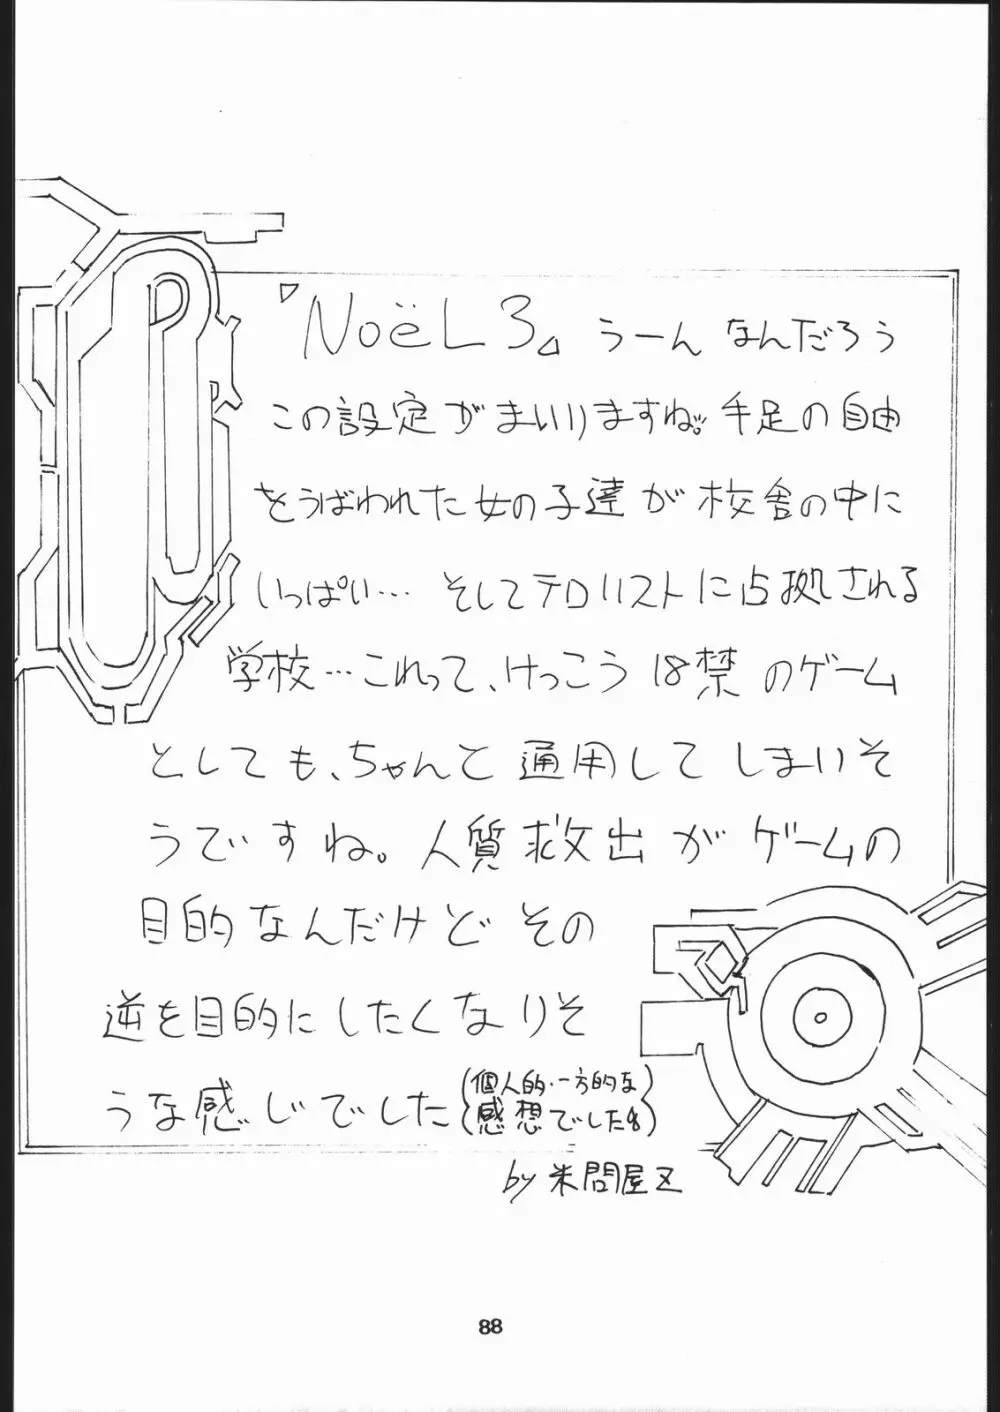 『NoëL 3』うーん なんだろう
この設定がまいりますね。手足の自由
をうばわれた女の子達が校舎の中に
いっぱい… そしてテロリストに占拠される
学校…これって、けっこう 18禁 のゲーム
としても、ちゃんと 通用して しまいそ
うですね。人質救出 が ゲームの
目的なんだけど その
逆を目的にしたくなりそ
うな感じでした
(個人的・一方的な
感想でした)
by 米問屋Z
88